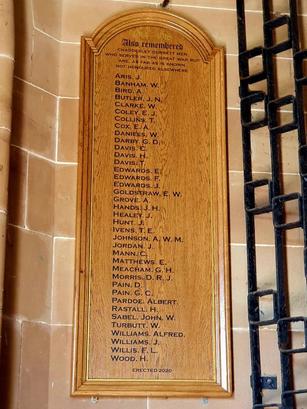 Also remembered
CHADDESLEY CORBETT MEN
WHO SERVED IN THE GREAT WAR BUT
ARE, AS FAR AS IS KNOWN
NOT HONOURED ELSEWHERE
ARIS. J.
BANHAM. W.
BIRD. A.
BUTLER. J. N.
CLARKE. W.
COLEY. E. J.
COLLINS. T.
COX. E. A.
DANIELS. W.
DARBY. G. D.
DAVIS. C.
DAVIS. H.
DAVIS. T.
EDWARDS. E.
EDWARDS. F.
EDWARDS. J.
GOLDSTRAW. E. W.
GROVE. A.
HANDS. J. H.
HEALEY. J.
HUNT. J.
IVENS. T. E.
JOHNSON. A. W. M.
JORDAN. J.
MANN. C.
MATTHEWS. E.
MEACHAM. G. H.
MORRIS. D. R. J.
PAIN. D.
PAIN. G. C.
PARDOE. ALBERT.
RASTALL. H.
SABEL. JOHN. W.
TURBUTT. W.
WILLIAMS. ALFRED.
WILLIAMS. J.
WILLIS. F. L.
WOOD. H.
ERECTED 2020